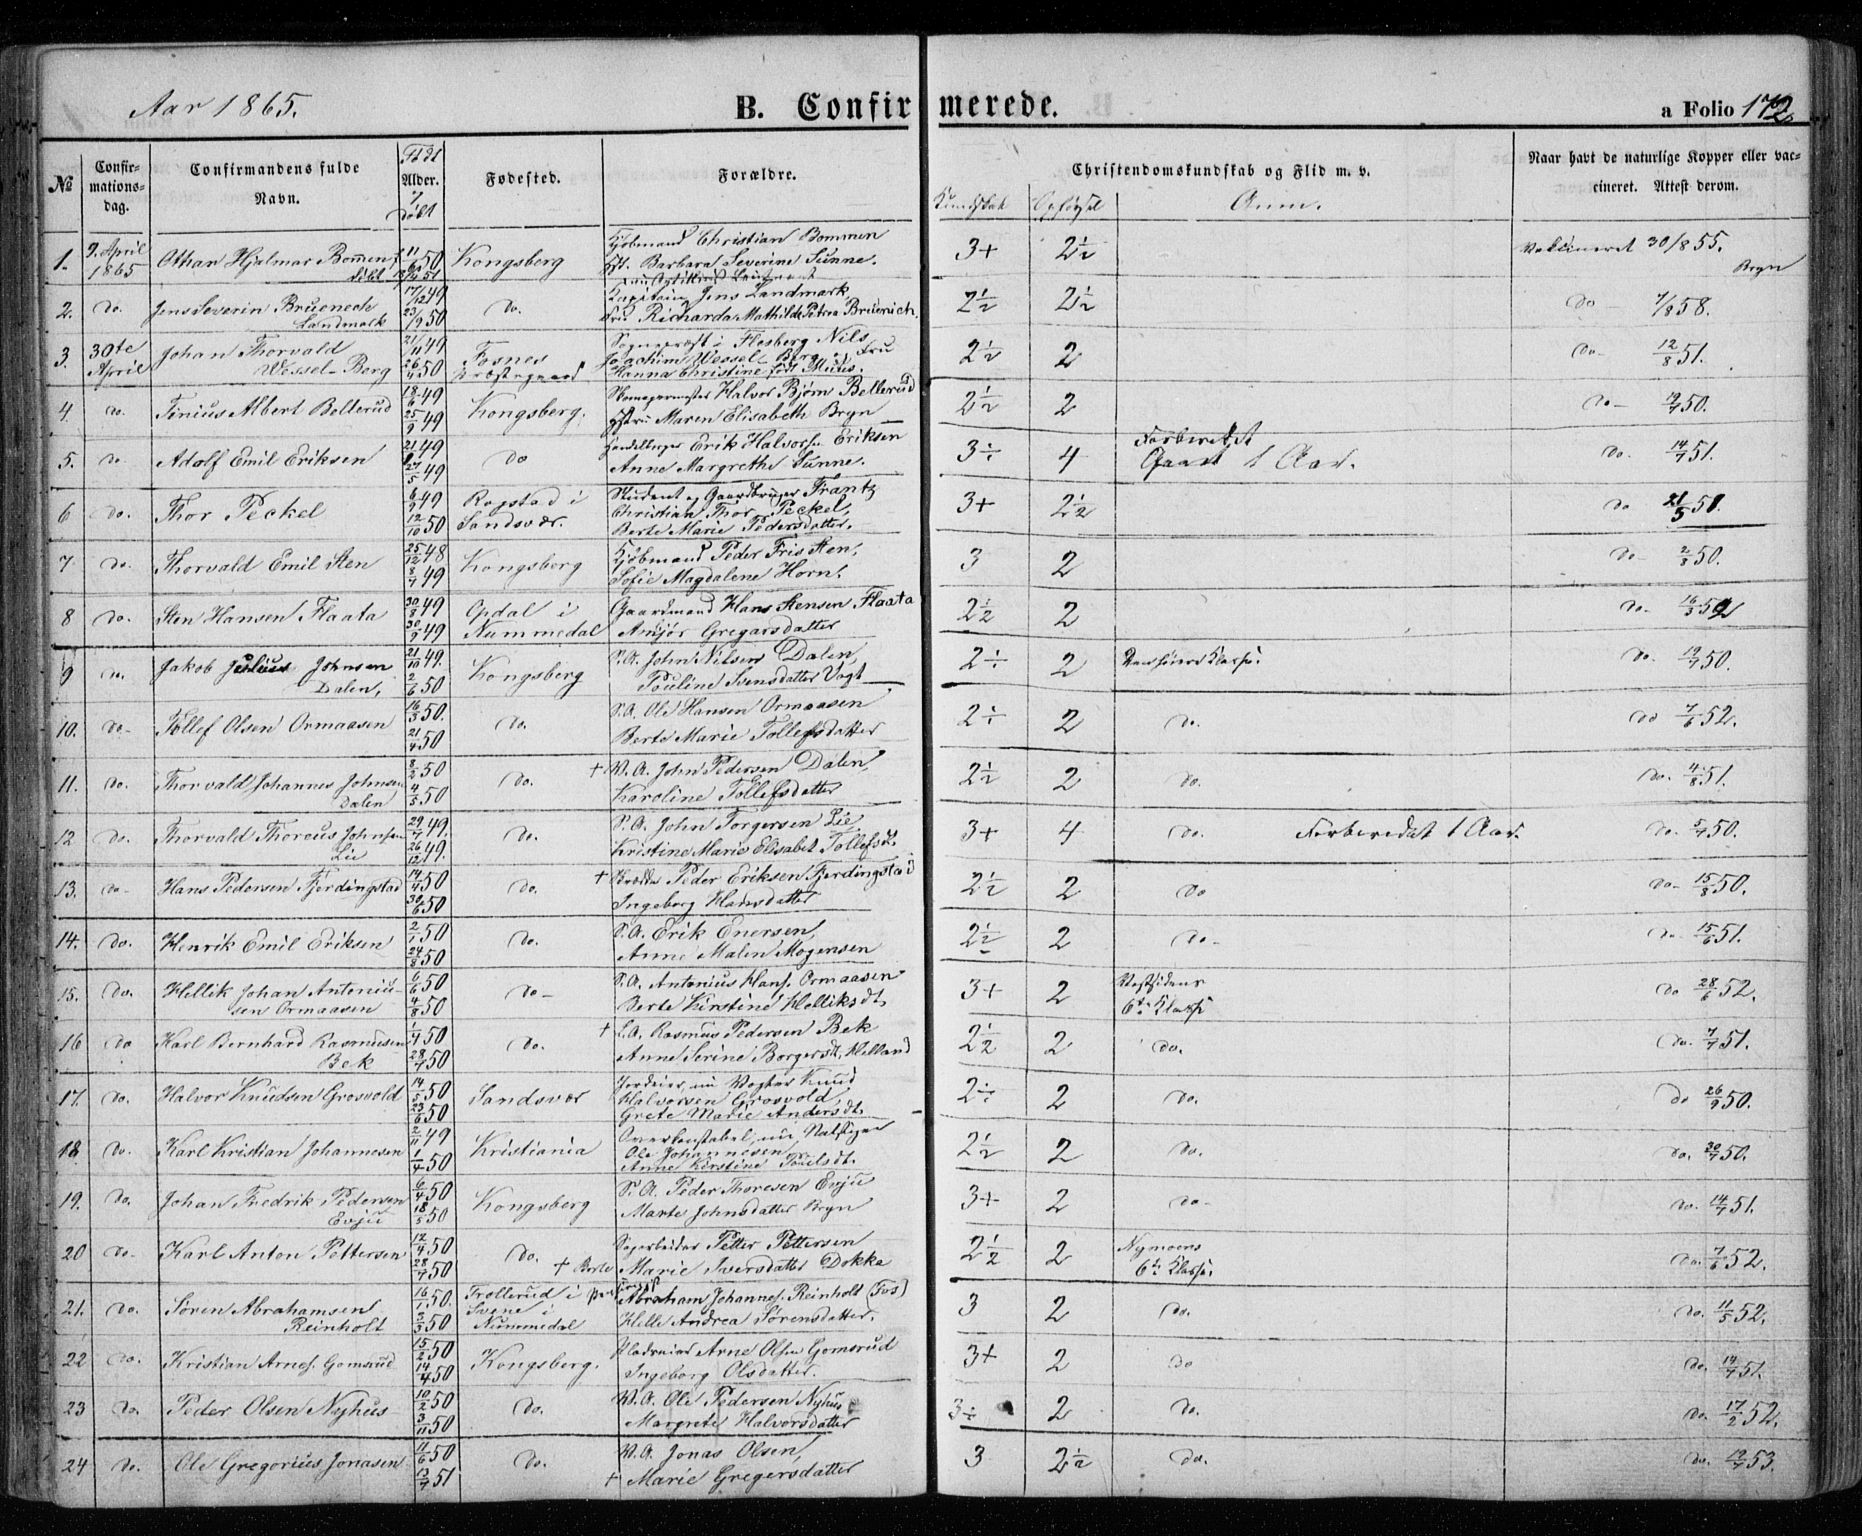 Aar 1865.
B. Confirmerede.
a Folio 172
№
Confirmationsdag.
Confirmandens fulde Navn.
Født Alder. Døbt
Fødested.
Forældre.
Christendomskundskab og Flid m. v.
Kundskab
Opførsel
Anm.
Naar havt de naturlige Kopper eller vaccineret. Attest derom.
1. 2. April 1865 Othar Hjalmar Bommen 11/6 50 døbt 51 Kongsberg Kjøbmand Christian Bommen
Barbara Severine Sunne. 3+ 2½ Vakcineret 30/8 55. Bryn
2. do. Jens Severin Bruenech Landmark 17/12 49 23/9 50 do. Kapitein Jens Landmark,
Fru Richarda Mathilde Petrea Breuerich. 2½ 2½ do 7/8 58.
3 30te April Johan Thorvald Wessel-Berg 21/11 49 26/4 50 Fosnes Præstegaard Sogneprest i Flesberg Nils
Joachim Wessel-Berg og Fru
Hanna Christine født Mütus. 2½ 2 do- 12/8 51.
4 do. Tinius Albert Bollerud 18/6 49 25/9 49 Kongsberg. Skomagermester Halvor Bjørn Bellerud
Maren Elisabeth Bryn 2½ 2 do- 19/7 50.
5. do Adolf Emil Eriksen 21/1 49 27/5 49 do Erik Halvors. Eriksen
Anne Margrethe Sunne. 3÷ 4 Forberedet
1 Aar. do. 14/7 51.
6 do. Thor Peckel 6/9 49 12/10 50 Rogstad i Sandsvær. Student og Gaardbruger Frantz
Christian Thor Peckel,
Berte Marie Pedersdatter. 3+ 2½ do 21/5 51.
7 do. Thorvald Emil Sten 25/12 48 8/7 49 Kongsberg Kjøbmand Peder Friis Sten,
Sofie Magdalene Horn. 3 2 do- 2/8 50.
8 do. Sten Hansen Flaata 30/8 49 30/9 49 Opdal i Nummedal Gaardmand Hans Stensen Flaata
Anjør Gregarsdatter 2½ 2 do. 16/3 52
9 do. Jakob Julius Johnsen Dalen, 21/10 49. 2/6 50 Kongsberg S.A. John Nilsen Dalen,
Pouline Svensdatter Vogt 2÷ 2 Klasse. do. 19/7 50.
10. do- Tollef Olsen Ormaasen 16/3 50. 21/4 50 do. S.A. Ole Hansen Ormaasen
Berte Marie Tollefsdatter 2÷ 2 do. do 7/6 52.
11. do. Thorvald Johannes Johnsen Dalen 8/2 50 4/5 50 do. + V.A. John Pedersen Dalen,
Karoline Tollefsdatter 2½ 2 do. do. 4/8 51.
12 do. Thorvald Thoreus Johnsen Lie 29/7 49. 26/12 49. do. S.A. John Torgersen Lie
Kristine Marie Elisabet Tollefsdt. 3+ 4 do. Forberedet 1 Aar. do. 5/7 50.
13. do- Hans Pedersen Fjerdingstad 14/4 50 30/6 50 do. + Peder Eriksen Fjerdingstad
Ingeborg Hansdatter 2½ 2 do do- 15/8 50.
14. do. Henrik Emil Eriksen 2/1 50 24/8 50 do. S.A. Erik Enersen,
Anne Malen Mogensen 2½ 2 do- do- 15/6 51.
15. do. Hellik Johan Antoniusen Ormaasen 6/6 50 4/8 50 do- S.A. Antonius Hans. Ormaasen
Berte Kirstine Helliksdt. 3+ 2 Vestsidens
6te Klasse do 28/6 52.
16 do Karl Bernhard Rasmusen Bek 1/4 50 28/7 50 do. + S.A. Rasmus Pedersen Bek
Anne Serine Borgersdt. Helland 2½ 2 do. do. 7/7 51.
17. do. Halvor Knudsen Grosvold 14/5 50 23/6 50 Sandsvær Jordeier, nu Vogter Knud
Halvorsen Grosvold,
Grete Marie Andersdt. 2÷ 2 do. do 26/9 50.
18 do. Karl Kristian Johannesen 2/11 49 1/4 50 Kristiania Overkonstabel, nu
Ole Johannesen
Anne Kirstine Poulsdt. 2½ 2 do. do. 30/7 50.
19. do. Johan Fredrik Pedersen Evju 6/4 50 18/5 50 Kongsberg S.A. Peder Thoresen Evju
Marte Johnsdatter Bryn 3+ 2 do- do. 14/7 51.
20 do- Karl Anton Pettersen 12/4 50 28/7 50 do. Sagarbeider Petter Pettersen
+ Berte Marie Iversdatter Dokka 2½ 2 Nymoens
6te Klasse. do. 7/6 52.
21. do. Søren Abrahamsen Reinholt 16/1 50. 2/5 50 Trollerud i Svene i Nummedal Abraham Johannes. Reinholt (Fos)
Helle Andrea Sørensdatter. 3 2 do. do. 11/5 52.
22 do. Kristian Arnes. Gomsrud 15/2 50 14/4 50 Kongsberg. Arne Olsen Gomsrud
Ingeborg Olsdatter. 3+ 2 do do. 14/7 51.
23 do. Peder Olsen Nyhus 10/2 50 3/11 50 do. V.A. Ole Pedersen Nyhus
Margrete Halvorsdatter 3÷ 2 do. do. 17/2 52.
24 do. Ole Gregorius Jonasen 11/6 50 13/7 51 do. V.A. Jonas Olsen,
+ Marie Gregersdatter 3 2½ do. do. 19/7 53.